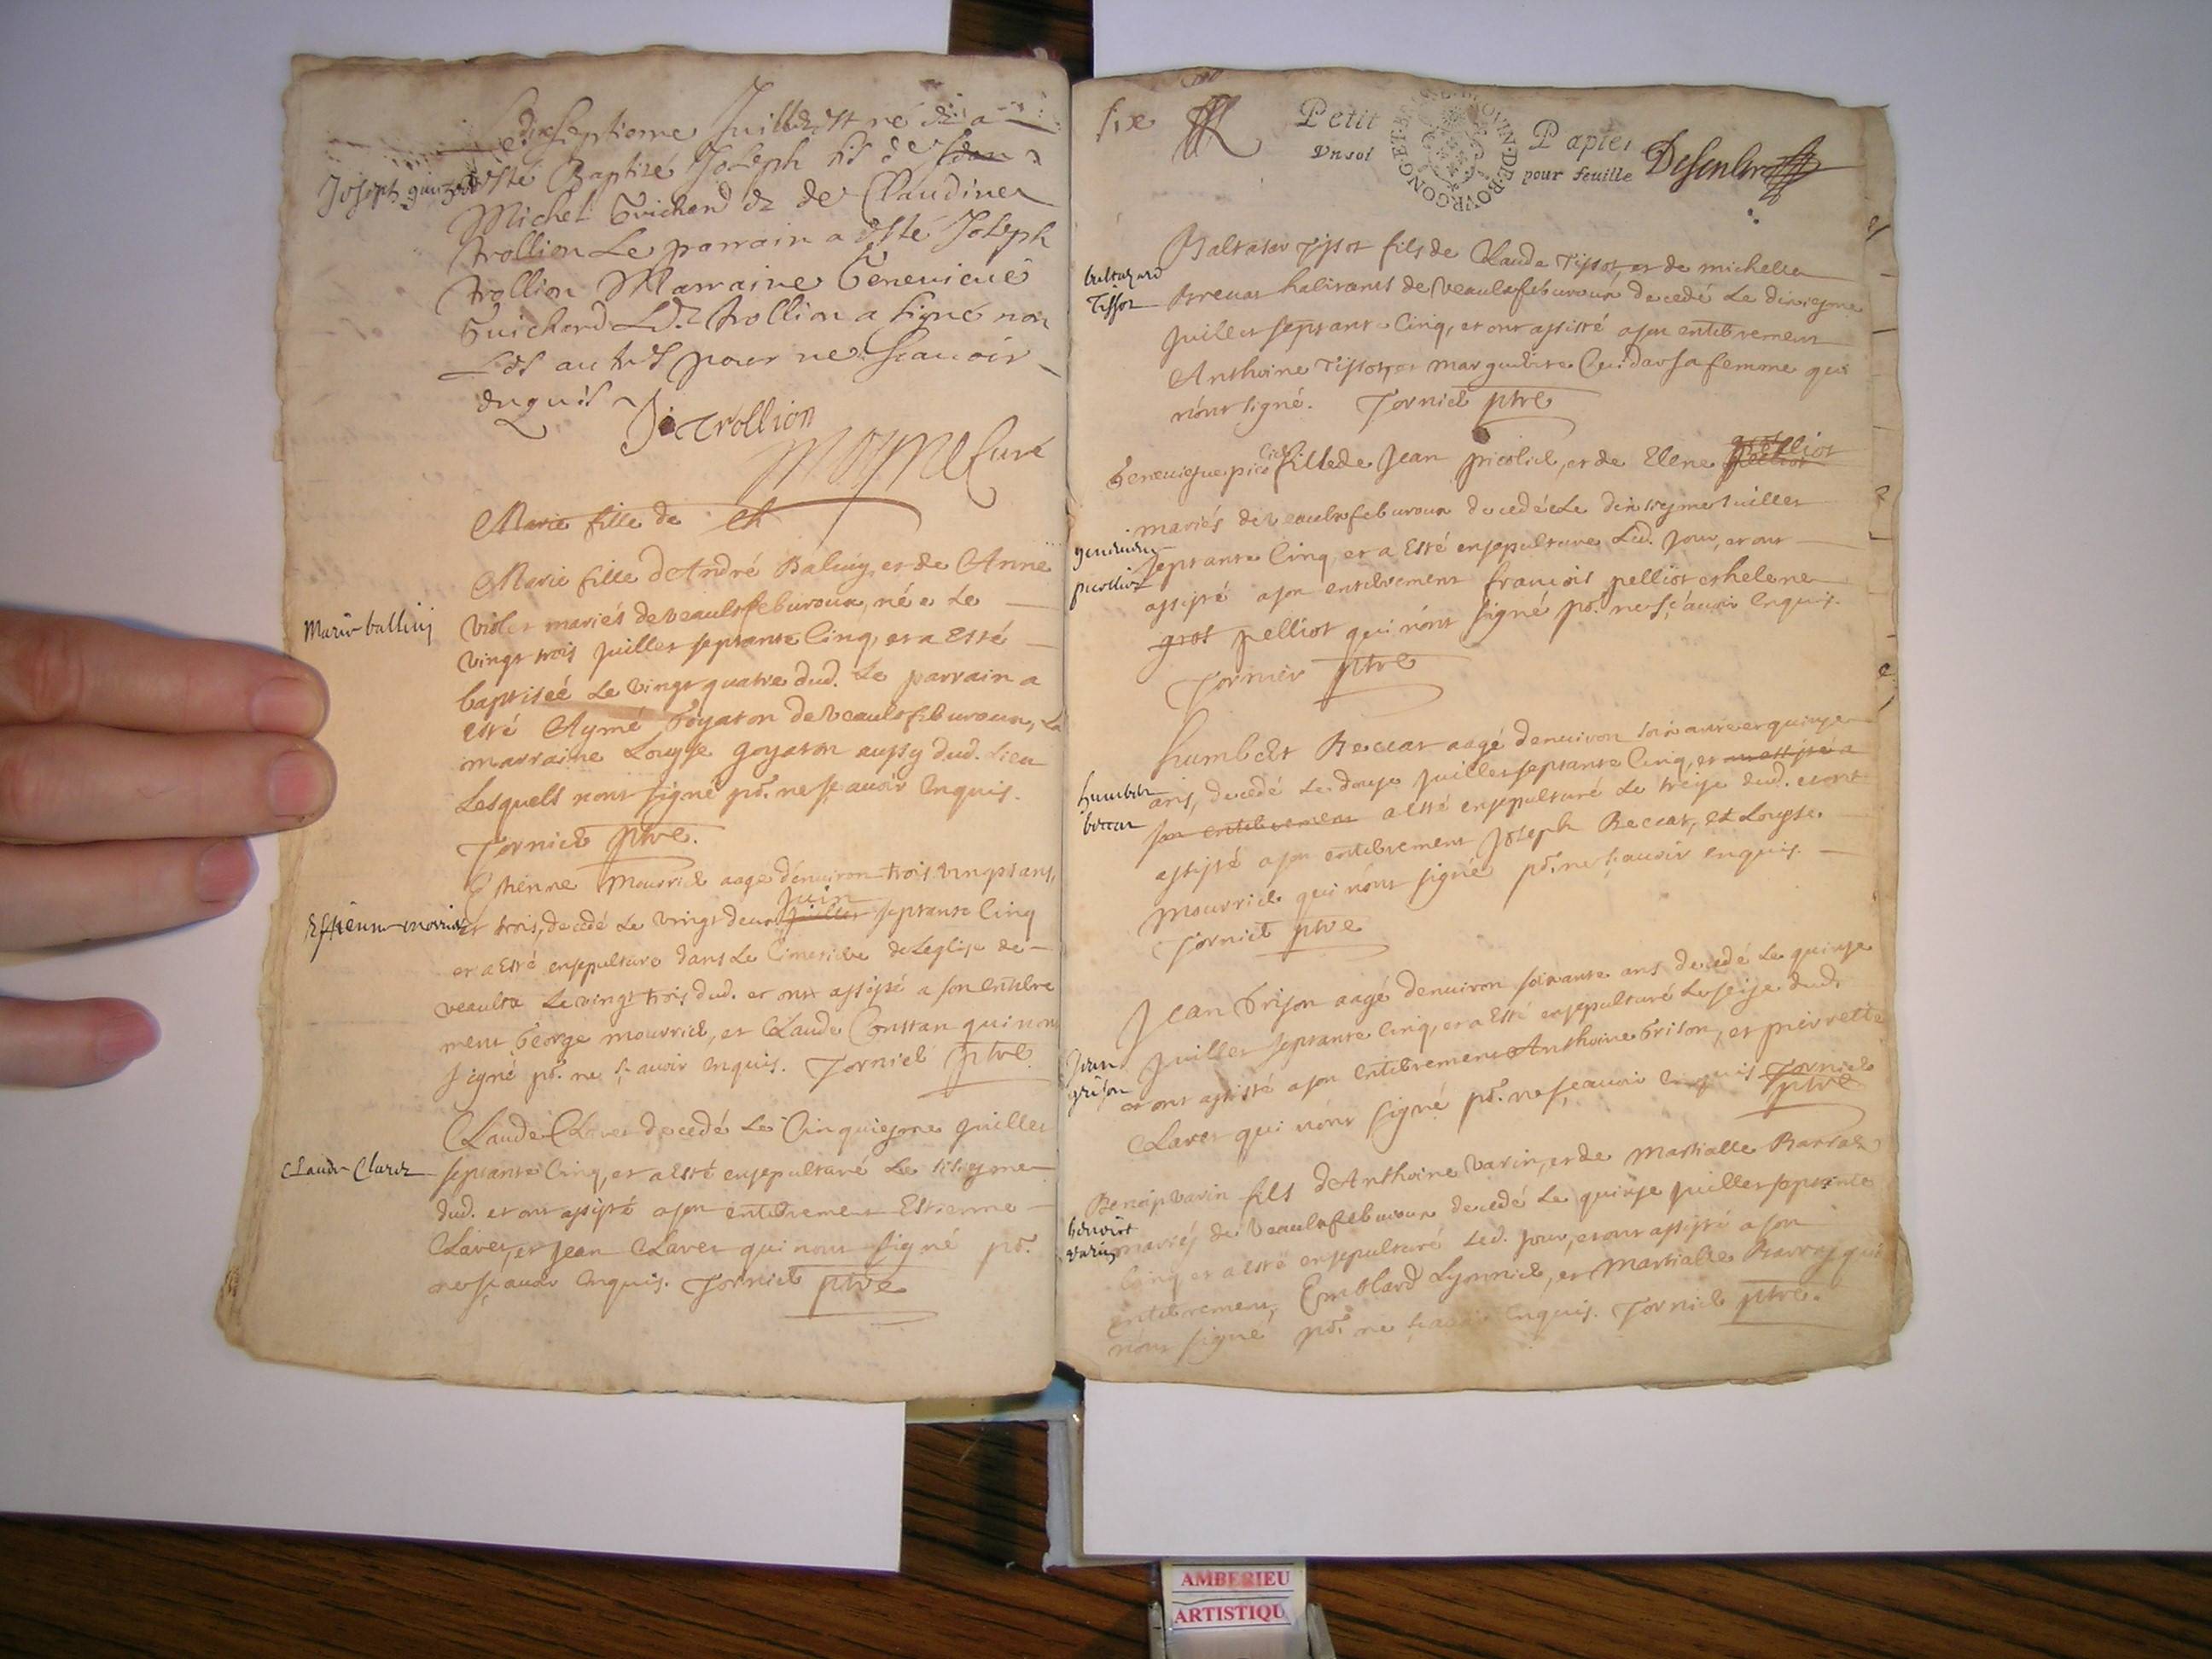 Le dixseptiesme Juillet est né & a
Joseph guichard
esté Baptizé Joseph fils de
Michel Guichard & de Claudine
trollion Le parrain a esté Joseph
trollion Marraine Genevieue
Guichard Led. trollion a signé non
Les autres pour ne scauoir
enquis
J. trollion
Curé
Marie fille de
Marie fille d'André Baluiy, et de Anne
Marie balluy
Violet mariés de veaulxfebvroux, née Le
vingt trois Juillet septante Cinq, et a Esté
baptiseé Le vingt quatre dud. Le parrain a
esté Aymé Goyaton de Veaulxfebvroux, La
marraine Louyse goyaton aussy dud. Lieu
Lesquels n'ont signé pr. ne sçauoir Enquis.
Torniel ptre.
Estienne Mourriel aagé d'enuiron trois vingts ans,
Juin
Estienne mourriel
et trois, decedé Le vingt deux juillet septante Cinq
et a Esté ensepulturé dans Le Cimetiere de Leglise de
veaulx Le vingt trois dud. et ont assisté a son Enterre
ment George mourriel, et Claude Constan qui n'ont
signé pr. ne sçauoir Enquis. Torniel ptre
Claude Claret decedé Le Cinquiesme Juillet
Claude Claret
septante Cinq, et a Esté ensepulturé Le sixiesme
dud. et ont assisté a son enterrement Estienne
Claret, et Jean Claret qui n'ont signé pr.
ne sçauoir Enquis. Torniel ptre
six
Petit Papier
Vn sol pour feuille
Baltasar Tissot fils de Claude Tissot, et de michelle
baltazard
Tissot
Breuat habitants de Veaulxfebvroux decedé Le dixiesme
Juillet septante Cinq, et ont assisté a son enterrement
Anthoine Tissot, et marguerite sa femme qui
n'ont signé. Torniel ptre
Geneuiefue picoliel fille de Jean picoliel, et de Elene pelliot
mariés de Veaulxfebvroux decedée Le dixiesme Juillet
septante Cinq, et a Esté ensepulturé Led. Jour, et ont
assisté a son enterrement francois pelliot et helene
grot pelliot qui n'ont signé pr. ne sçauoir Enquis.
Torniel ptre
humbert Beccat aagé d'enuiron soixante et quinze
humbert
beccat
ans, decedé Le douze Juillet septante Cinq, et ont assisté a
son enterrement a Esté ensepulturé Le treize dud. et ont
assisté a son enterrement Joseph Beccat, et Louyse
mourriel qui n'ont signé pr. ne sçauoir enquis.
Torniel ptre
Jean Grison aagé d'enuiron soixante ans decedé Le quinze
Juillet septante Cinq, et a Esté ensepulturé Le seize dud.
Jean
grison
et ont assisté a son enterrement Anthoine Grison, et pierrette
Claret qui n'ont signé pr. ne sçauoir Enquis Torniel
ptre
Benoist Varin fils d'Anthoine Varin, et de Martialle Barras
benoist
varin
mariés de Veaulxfebvroux decedé Le quinze Juillet septante
Cinq et a Esté ensepulturé Led. Jour, et ont assisté a son
enterrement, Emblard Lyonniel, et Martialle Barras qui
n'ont signé pr. ne sçauoir Enquis. Torniel ptre.
AMBERIEU
ARTISTIQU